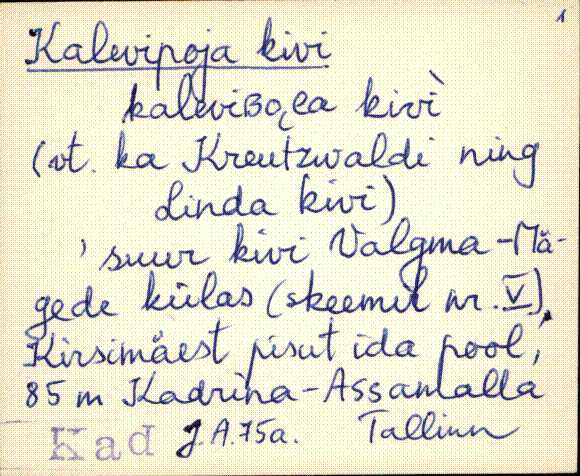 1
Kalevipoja kivi
kaleviʙo̬ɛa kivì
(vt. ka Kreutzwaldi ning
Linda kivi)
' suur kivi Valgma-Mä-
gede külas (skeemil nr. V),
Kirsimäest pisut ida pool,
85 m Kadrina-Assamalla
Kad J.A. 75a. Tallinn